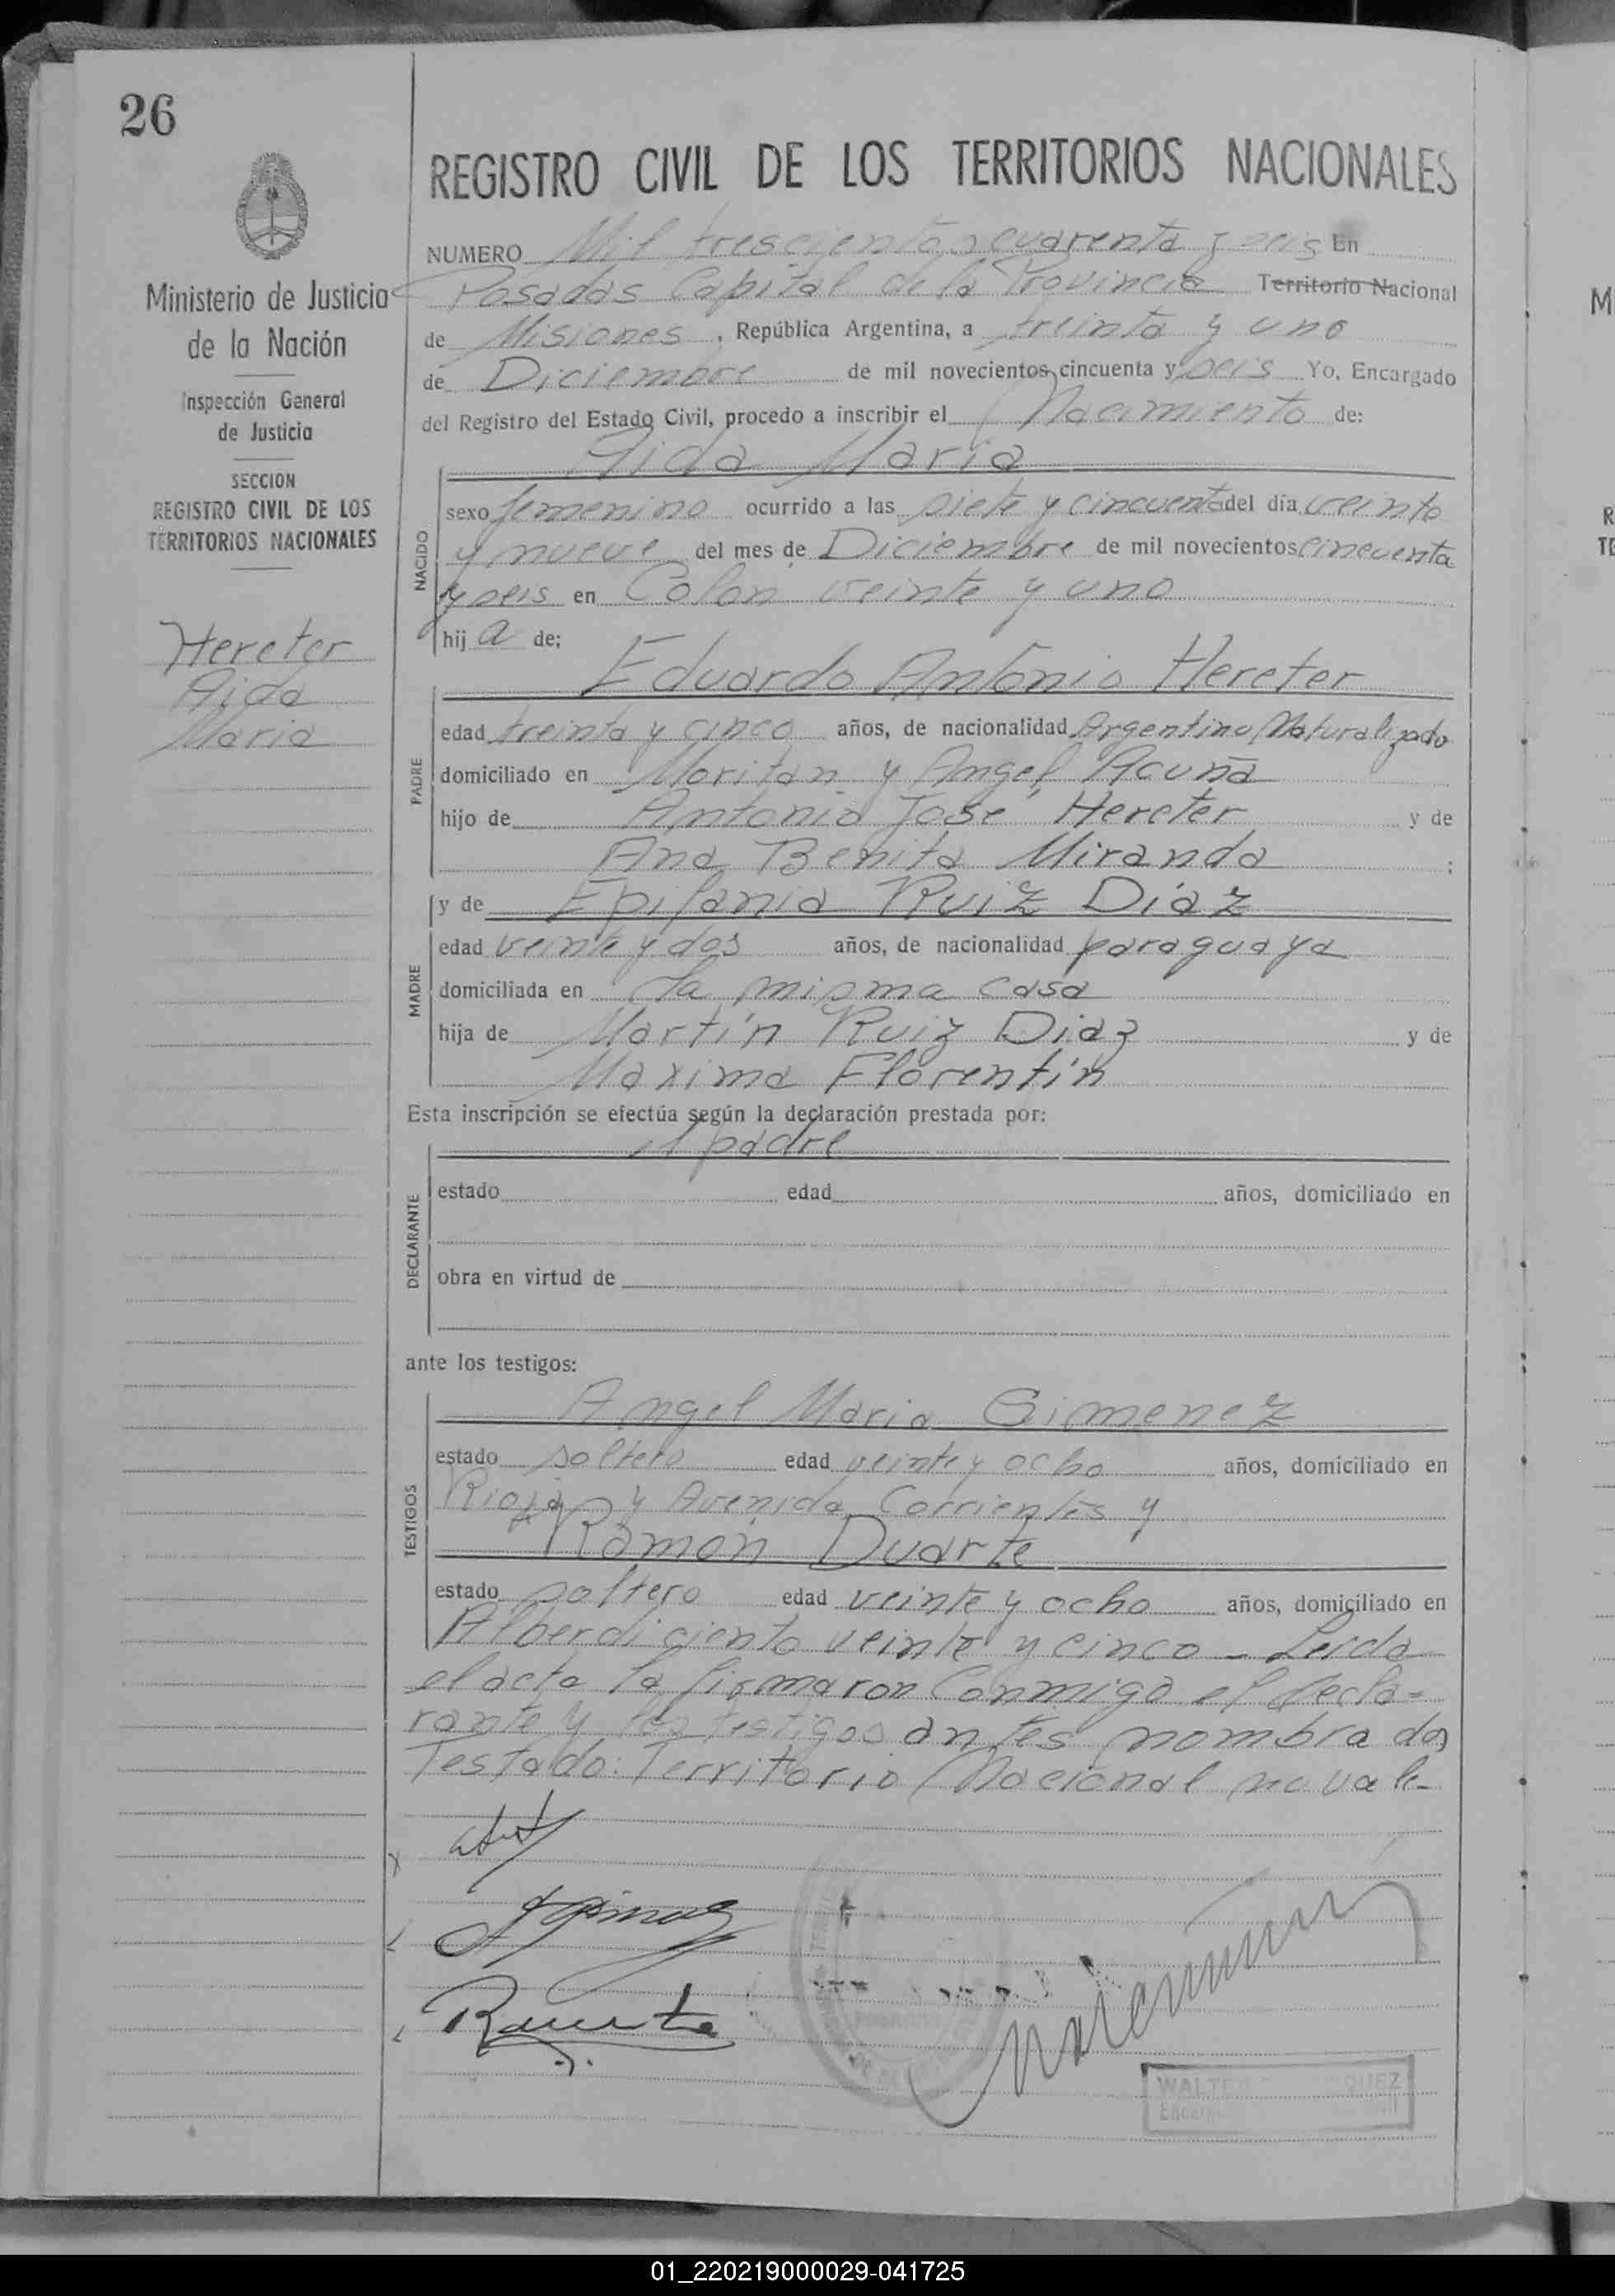 26
REGISTRO CIVIL DE LOS TERRITORIOS NACIONALES
Ministerio de Justicia
de la Nación
Inspección General
de Justicia
SECCION
REGISTRO CIVIL DE LOS
TERRITORIOS NACIONALES
Hereter
Aida
Maria
NUMERO Mil trescientos cuarenta y seis En
Posadas Capital de la Provincia Territorio Nacional
de Misiones, República Argentina, a treinta y uno
de Diciembre de mil novecientos cincuenta y seis Yo, Encargado
del Registro del Estado Civil, procedo a inscribir el Nacimiento de:
Aida Maria
NACIDO
sexo femenino ocurrido a las siete y cincuenta del día veinte
y nueve del mes de Diciembre de mil novecientos cincuenta
y seis en Colon veinte y uno
hij a de:
Eduardo Antonio Hereter
PADRE
edad treinta y cinco años, de nacionalidad Argentino Naturalizado
domiciliado en Moritan y Angel Acuña
hijo de Antonio José Hereter y de
Ana Benita Miranda ;
y de Epifania Ruiz Díaz
MADRE
edad veinte y dos años, de nacionalidad paraguaya
domiciliada en la misma casa
hija de Martín Ruiz Diaz y de
Maxima Florentín
Esta inscripción se efectúa según la declaración prestada por:
el padre
DECLARANTE
estado edad años, domiciliado en
obra en virtud de
ante los testigos:
Angel Maria Gimenez
TESTIGOS
estado soltero edad veinte y ocho años, domiciliado en
Rioja y Avenida Corrientes y
Ramón Duarte
estado soltero edad veinte y ocho años, domiciliado en
Alberdi ciento veinte y cinco - Leida
el acta la firmaron conmigo el decla-
rante y los testigos antes nombrados
Testado: Territorio Nacional no vale-
WALTER
01_220219000029-041725